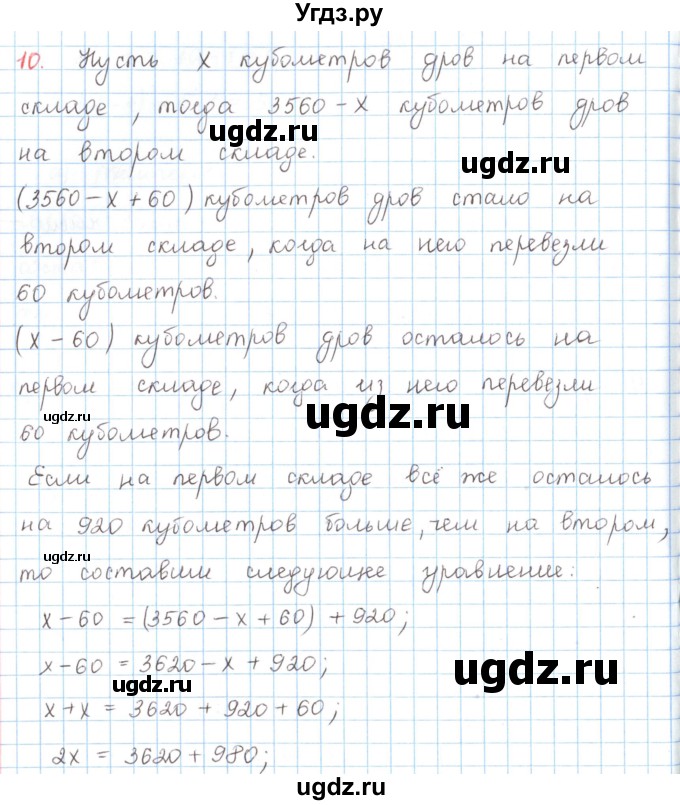 Угдз.ру
10. Пусть x кубометров дров на первом
складе, тогда 3560 - x кубометров дров
на втором складе.
ugdz.ru
ugdz.ru
(3560 - x + 60) кубометров дров стало на
втором складе, когда на него перевезли
60 кубометров.
(x - 60) кубометров дров осталось на
первом складе, когда из него перевезли
ugdz.ru
ugdz.ru
60 кубометров.
Если на первом складе всё же осталось
на 920 кубометров больше, чем на втором,
ugdz.ru
то составим следующее уравнение:
x - 60 = (3560 - x + 60) + 920;
x - 60 = 3620 - x + 920;
ugdz.ru
ugdz.ru
x + x = 3620 + 920 + 60;
2x = 3620 + 980;
ugdz.ru